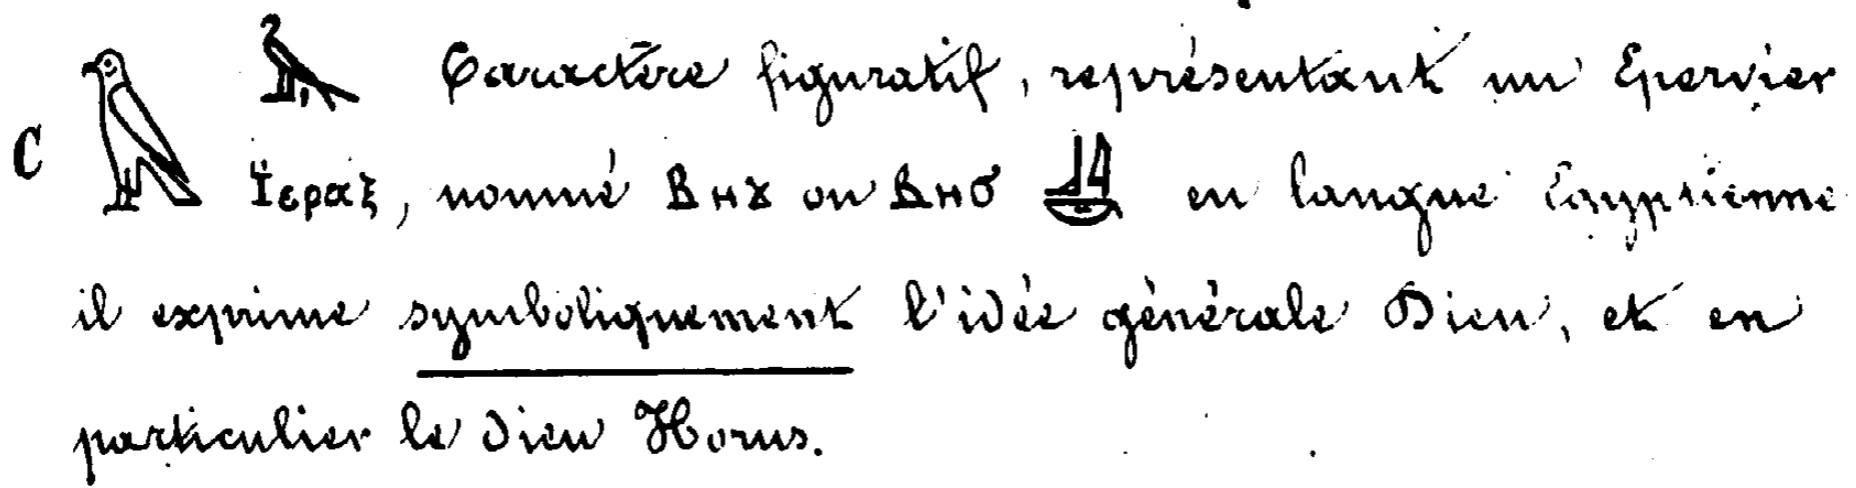 C 𓅃 Caractère figuratif, représentant un Epervier
Ϊεραξ, nommé Ⲃⲏϫ ou Ⲃⲏϭ en langue Egyptienne
il exprime symboliquement l'idée générale Dieu, et en
particulier le dieu Horus.